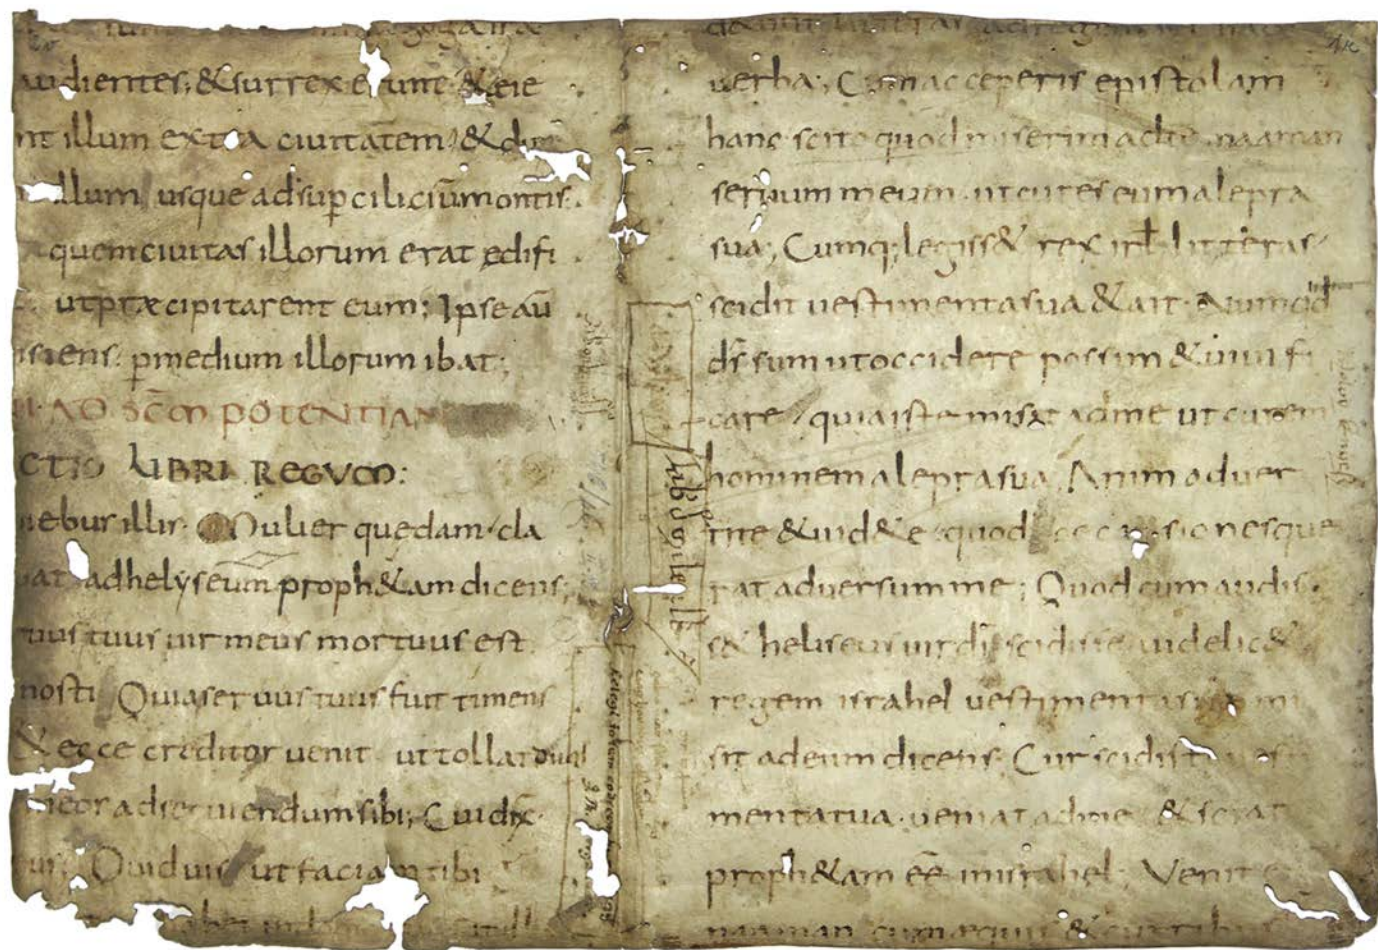 audientes; & surrexerunt & eie
nt illum extra ciuitatem / & dux
illum usque ad supciliciū montis.
quem ciuitas illorum erat ędifi
ut pręcipitarent eum; Ipse aū
nsiens. p medium illorum ibat;
AD SC̄M POTENTIAN
CTIO LIBRI REGUM:
iebus illis. Mulier quędam cla
bat ad helyseum proph&am dicens;
uus tuus uir meus mortuus est
nosti Quia seruus tuus fuit timens
& ecce creditor uenit ut tollat duos
meos ad seruiendum sibi; Cui dix
Quid uis ut faciam tibi
uerba; Cum acceperis epistolam
hanc scito quod miserim ad te naaman
seruum meum. ut cures eum a lepra
sua; Cumq; legiss& rex irł litteras
scidit uestimenta sua & ait. Numqd
ds̄ sum ut occidere possim & uiuifi
care / quia iste misit ad me ut curem
hominem a lepra sua. Animaduer
tite & uid&e quod occasiones que
rat aduersum me; Quod cum audis
s& heliseus uir dī scidisse uidelic&
regem israhel uestimenta sua mi
sit ad eum dicens. Cur scidisti ues
menta tua. ueniat ad me & sciat
proph&am eē in israhel; Venit
naaman cum equis & curribus